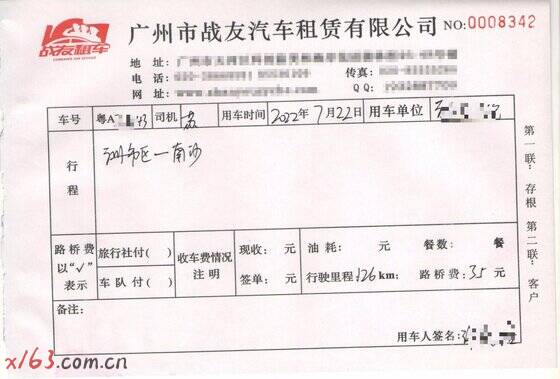 战友租车
广州市战友汽车租赁有限公司 NO:0008342
地址:
电话: 传真:
网址: QQ:
车号 粤A 司机 用车时间 2022年7月22日 用车单位
行程 广州市区—南沙
路桥费以“√”表示 旅行社付( ) 车队付( )
收车费情况注明 现收: 元 签单: 元
油耗: 元 餐数: 餐
行驶里程:126km; 路桥费:35元
备注:
用车人签名:
第一联:存根 第二联:客户
x163.com.cn